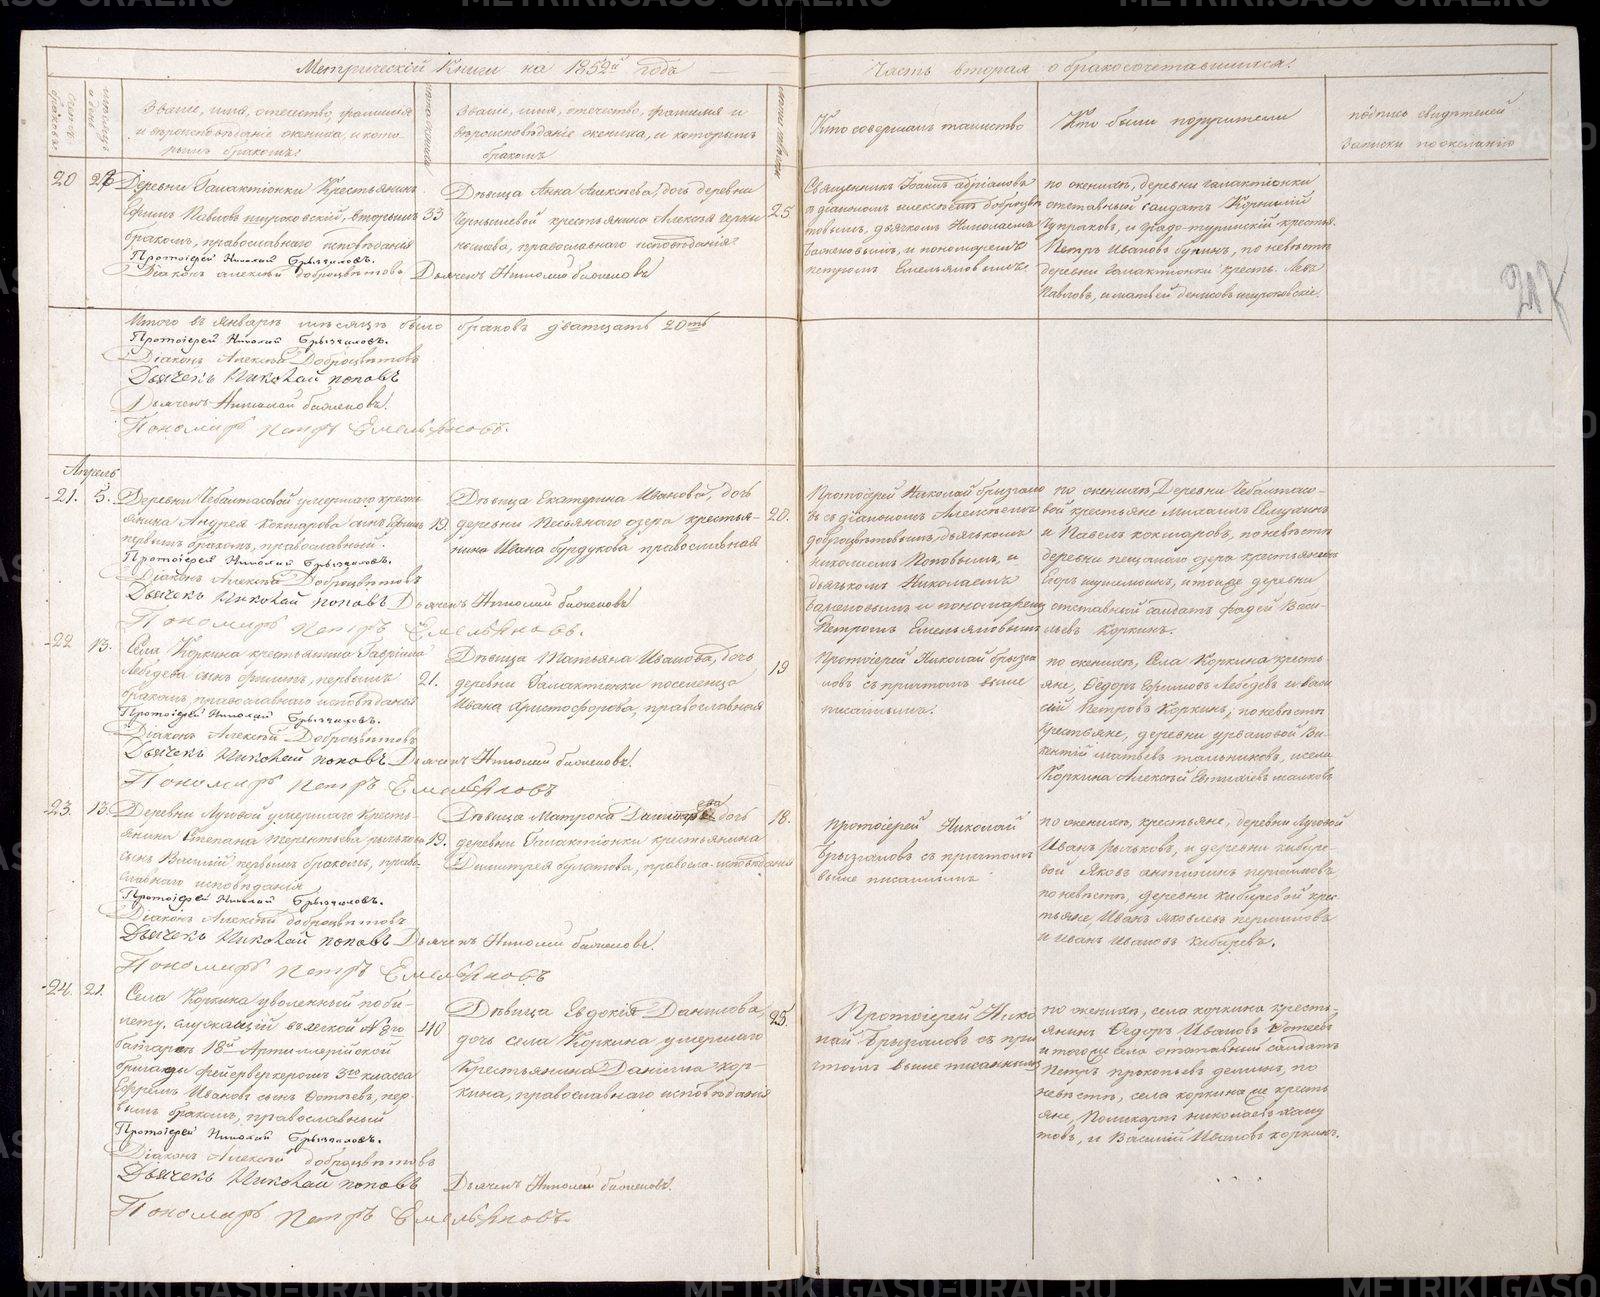 Метрической Книги на 1852й года
Часть вторая о бракосочетавшихся.
Званіе, имя, отчество, фамилія
и вѣроисповѣданіе жениха, и кото-
рымъ бракомъ.
Званіе, имя, отчество, фамилія и
вѣроисповѣданіе жениха, и которымъ
бракомъ
Кто совершалъ таинство
Кто были поручители
подпись свидѣтелей
Записки по желанію
20
Деревни Галактіонки Крестьянинъ
Ефимъ Павловъ широковскій, вторымъ
бракомъ, православнаго исповѣданія
33
Протоіерей Николай Брызгаловъ.
Діаконъ Алексѣй Доброцвѣтовъ
Дьячекъ Николай баженовъ
Дѣвица Анна Алексѣева, дочь деревни
Чернышевой крестьянина Алексѣя черны
шева, православнаго исповѣданія
25
Священникъ Іоаннъ адріановъ
съ діакономъ алексѣемъ доброцвѣ
товымъ, дьячкомъ Николаемъ
баженовымъ, и пономаремъ
петромъ Емельяновымъ.
по женихѣ, деревни галактіонки
отставный салдатъ Корнилій
Чупраковъ, и градо-туринскій крестья.
Петръ Ивановъ бунинъ, по невѣстѣ
деревни Галактіонки кресть. Левъ
Павловъ, и матвей денисовъ широковскіе.
Итого въ январѣ мѣсяцѣ было браковъ дватцать 20ть
Протоіерей Николай Брызгаловъ.
Діаконъ Алексѣй Доброцвѣтовъ
Дьячекъ Николай поповъ
Дьячекъ Николай баженовъ.
Пономарь Петръ Емельяновъ.
Апрель
21. 5.
Деревни Чебалтасовой умершаго кресть
янина Андрея Кокшарова сынъ Ефимъ
первымъ бракомъ, православный.
19.
Протоіерей Николай Брызгаловъ.
Діаконъ Алексѣй Доброцвѣтовъ
Дьячекъ Николай поповъ Дьячекъ Николай баженовъ
Пономарь Петръ Емельяновъ.
Дѣвица Екатерина Иванова, дочь
деревни Песьянаго озера крестья-
нина Ивана бурдукова православная
20.
Протоіерей Николай брызгало
въ съ діакономъ Алексѣемъ
доброцвѣтовымъ, дьячкомъ
николаемъ Поповымъ, и
дьячькомъ Николаемъ
баженовымъ и пономаремъ
Петромъ Емельяновымъ
по женихѣ Деревни Чебалтасо-
вой крестьяне Михаилъ
и Павелъ кокшаровъ, по невѣстѣ
деревни песьянаго озера крестьянинъ
Егоръ и тойже деревни
отставный салдатъ фадей Васи-
льевъ Коркинъ.
22 13.
Села Коркина крестьянина Гавріила
Лебедева сынъ филипъ, первымъ
бракомъ, православнаго исповѣданія
21.
Протоіерей Николай Брызгаловъ.
Діаконъ Алексѣй Доброцвѣтовъ
Дьячекъ Николай поповъ Дьячекъ Николай баженовъ.
Пономарь Петръ Емельяновъ
Дѣвица Татьяна Иванова, дочь
деревни Галактіонки поселенца
Ивана Аристофорова, православная
19
Протоіерей Николай брызга
ловъ съ причтомъ выше
писаннымъ.
по женихѣ, Села Коркина кресть
яне, Ѳедоръ Ефимовъ Лебедевъ и Васи
лій Петровъ Коркинъ, по невѣстѣ
Крестьяне, деревни урвановой Ви-
кентій матвѣевъ тальниковъ, и села
Коркина Алексѣй
23. 13.
Деревни Луговой умершаго Кресть-
янина Степана терентьева рычкова
сынъ Василій первымъ бракомъ, право-
славнаго исповѣданія
19.
Протоіерей Николай Брызгаловъ.
Діаконъ Алексѣй доброцвѣтовъ
Дьячекъ Николай поповъ Дьячекъ Николай баженовъ.
Пономарь Петръ Емельяновъ
Дѣвица Матрона дочь
деревни Галактіонки крестьянина
Димитрея булатова, правосла- исповѣданія
18.
Протоіерей Николай
Брызгаловъ съ причтомъ
выше писаннымъ
по женихѣ, крестьяне, деревни Луговой
Иванъ рычковъ, и деревни кибире-
вой Яковъ антипинъ перминовъ,
по невѣстѣ, деревни кибиревой крес-
тьяне, Иванъ Яковлевъ перминовъ
и иванъ Ивановъ Кибиревъ.
24. 21.
Села Коркина уволенный по би-
лету, служащій въ легкой №8го
батареи 18й Артиллерійской
бригады фейерверкеромъ 3го класса
Ефремъ Ивановъ сынъ Фотеевъ, пер-
вымъ бракомъ, православный
40
Протоіерей Николай Брызгаловъ.
Діаконъ Алексѣй доброцвѣтовъ
Дьячекъ Николай поповъ Дьячекъ Николай баженовъ.
Пономарь Петръ Емельяновъ.
Дѣвица Евдокія Данилова,
дочь села Коркина умершаго
Крестьянина Данила кор-
кина, православнаго исповѣданія
25.
Протоіерей Нико
лай Брызгаловъ съ при
чтомъ выше писаннымъ
по женихѣ, села коркина кресть-
янинъ Ѳедоръ Ивановъ Фотеевъ
и тогоже села отставный салдатъ
Петръ прокопьевъ деминъ, по
невѣстѣ, села коркина же кресть
яне, Поликарпъ николаевъ
и Василій Ивановъ коркинъ.
METRIKI.GASO-URAL.RU